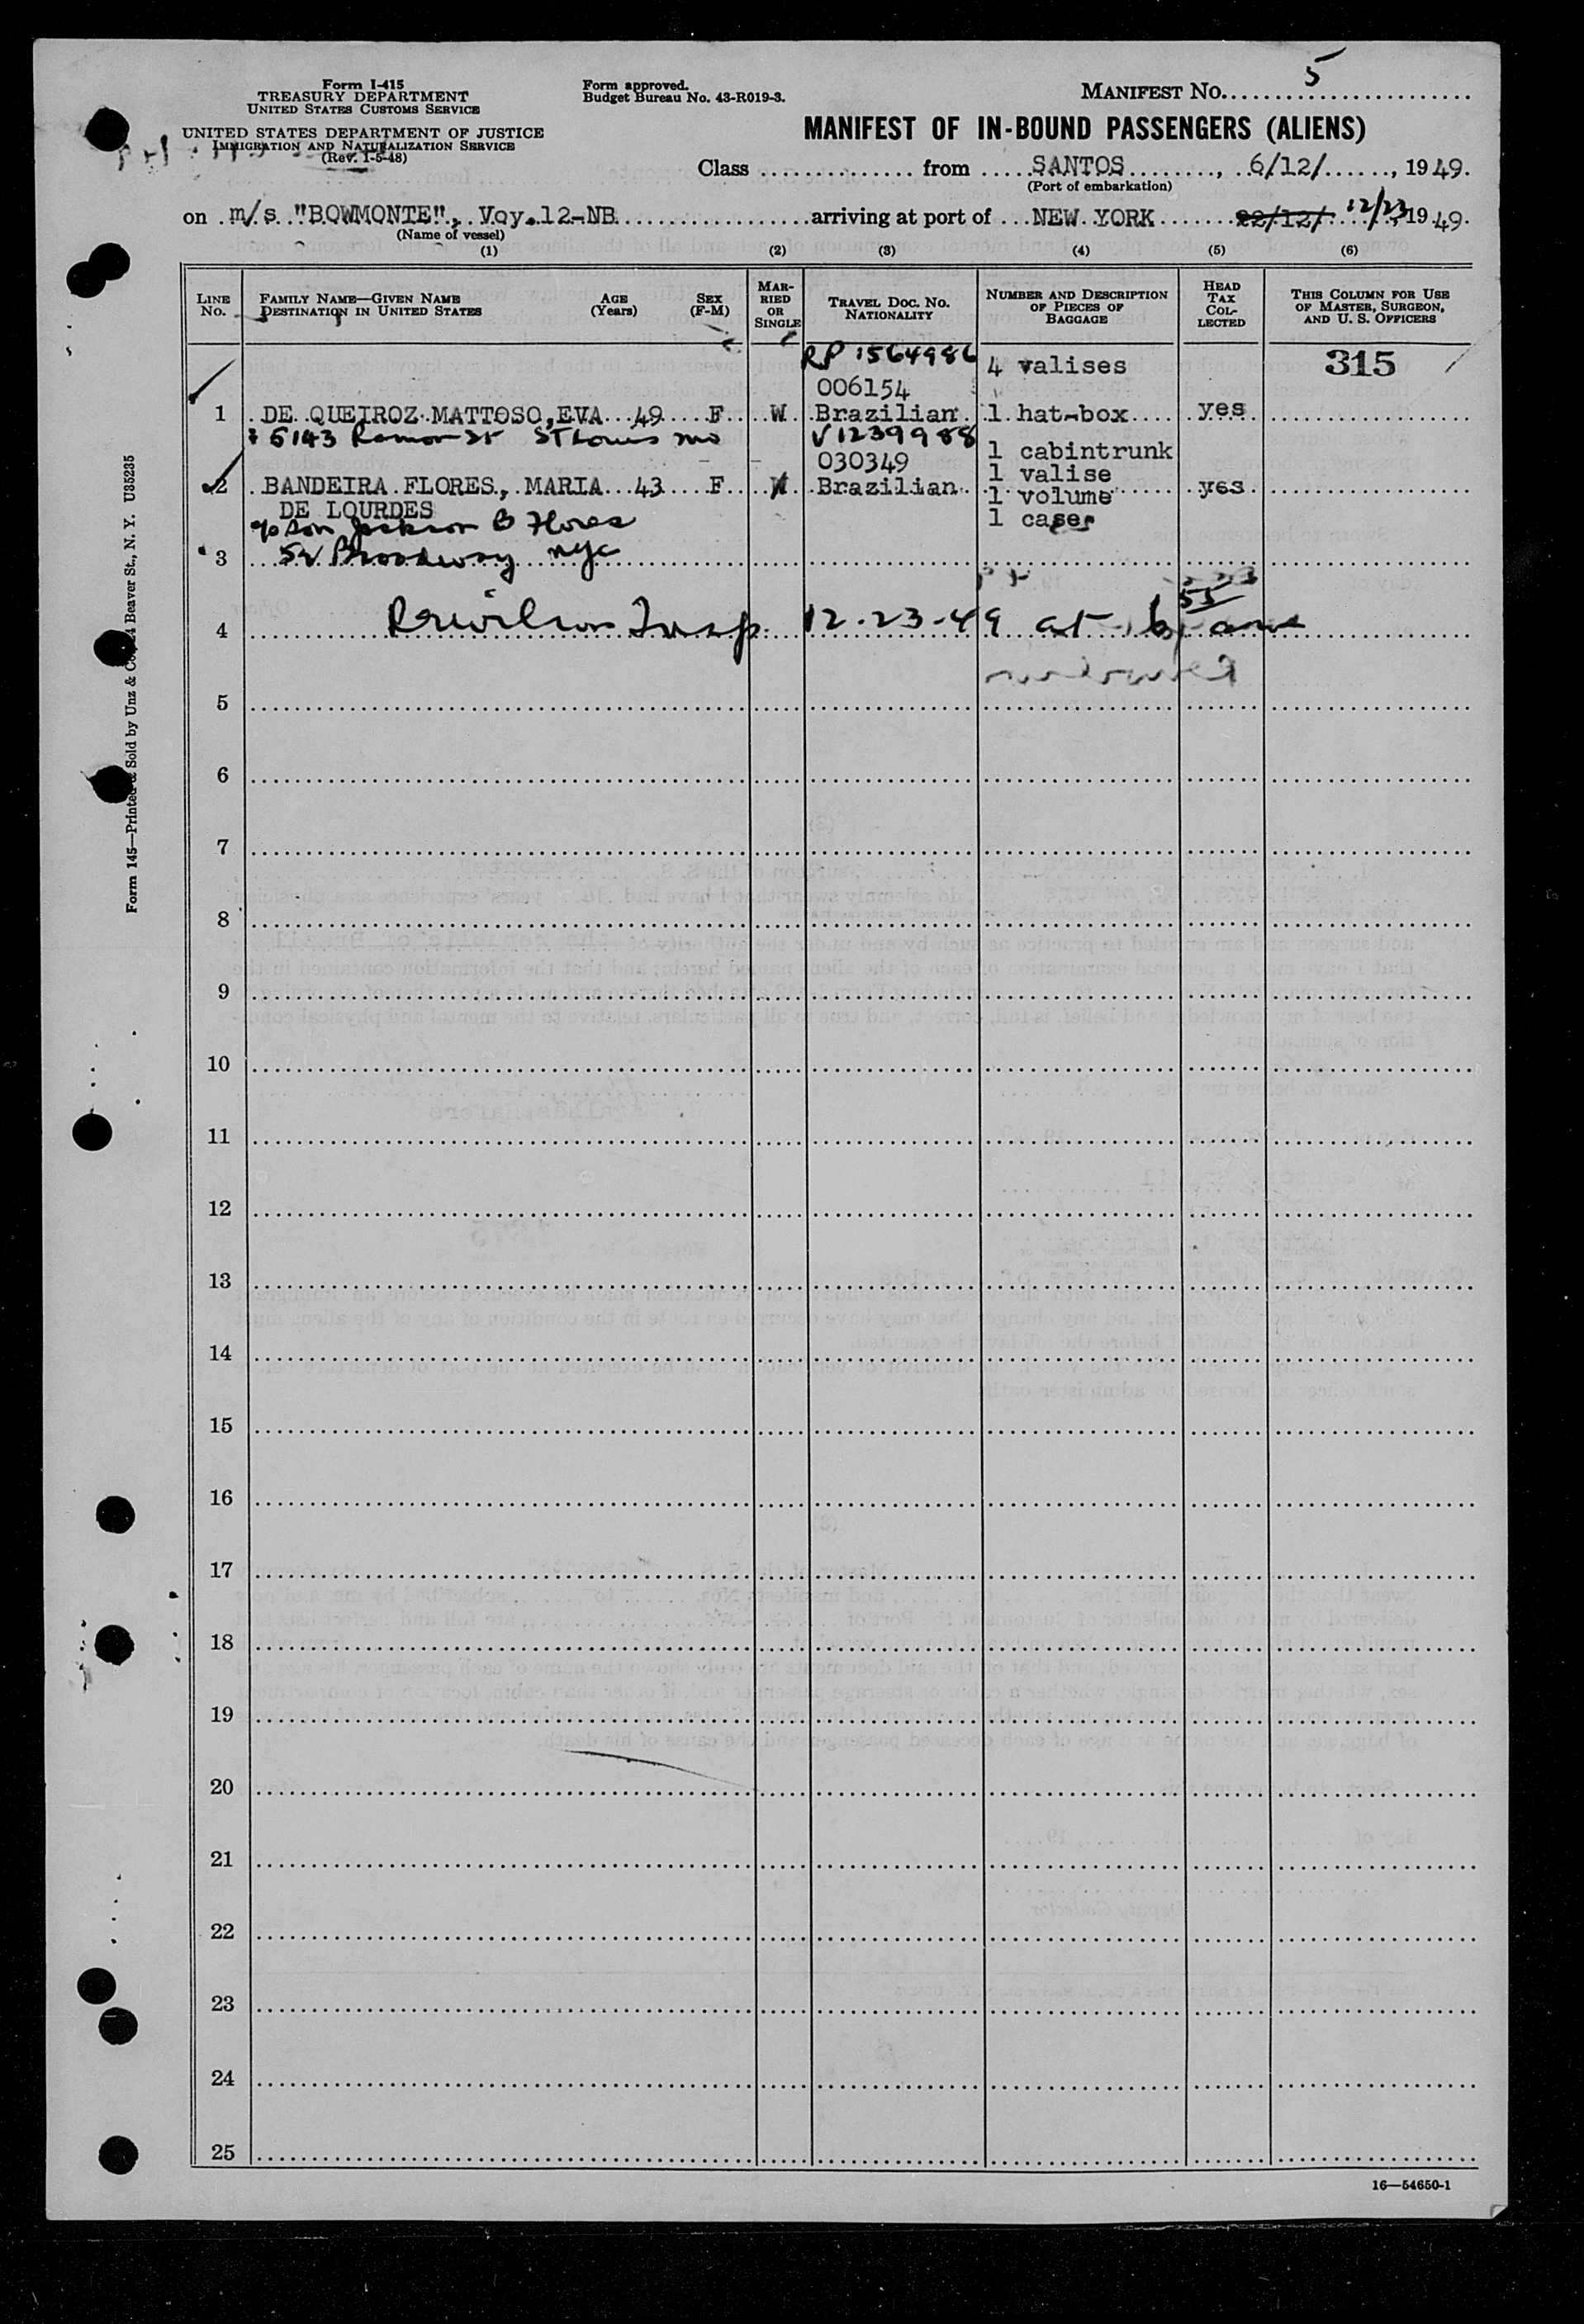 5
Form I-415
TREASURY DEPARTMENT
UNITED STATES CUSTOMS SERVICE
UNITED STATES DEPARTMENT OF JUSTICE
IMMIGRATION AND NATURALIZATION SERVICE
(Rev. 1-5-48)
Form approved.
Budget Bureau No. 43-R019-3.
MANIFEST NO.
MANIFEST OF IN-BOUND PASSENGERS (ALIENS)
Class from SANTOS, 6/12/, 1949.
(Port of embarkation)
on m/s "BOWMONTE", Voy. 12-NB arriving at port of NEW YORK 22/12/ 12/23, 1949.
(Name of vessel)
(1) (2) (3) (4) (5) (6)
LINE NO.
FAMILY NAME—GIVEN NAME
DESTINATION IN UNITED STATES
AGE (Years)
SEX (F-M)
MARRIED OR SINGLE
TRAVEL DOC. NO. NATIONALITY
NUMBER AND DESCRIPTION OF PIECES OF BAGGAGE
HEAD TAX COLLECTED
THIS COLUMN FOR USE OF MASTER, SURGEON, AND U. S. OFFICERS
RP 1564986 4 valises 315
006154
1 DE QUEIROZ MATTOSO, EVA 49 F W Brazilian 1 hat-box yes
5143 St St Louis Mo V1239988
030349 1 cabintrunk
1 valise
2 BANDEIRA FLORES, MARIA 43 F W Brazilian 1 volume yes
DE LOURDES 1 case
c/o Son Jackson B Flores
3 52 Broadway NYC
4 Insp 12-23-49 at
5
6
7
8
9
10
11
12
13
14
15
16
17
18
19
20
21
22
23
24
25
16—54650-1
Form 145—Printed & Sold by Unz & Co., 24 Beaver St., N. Y. U35235